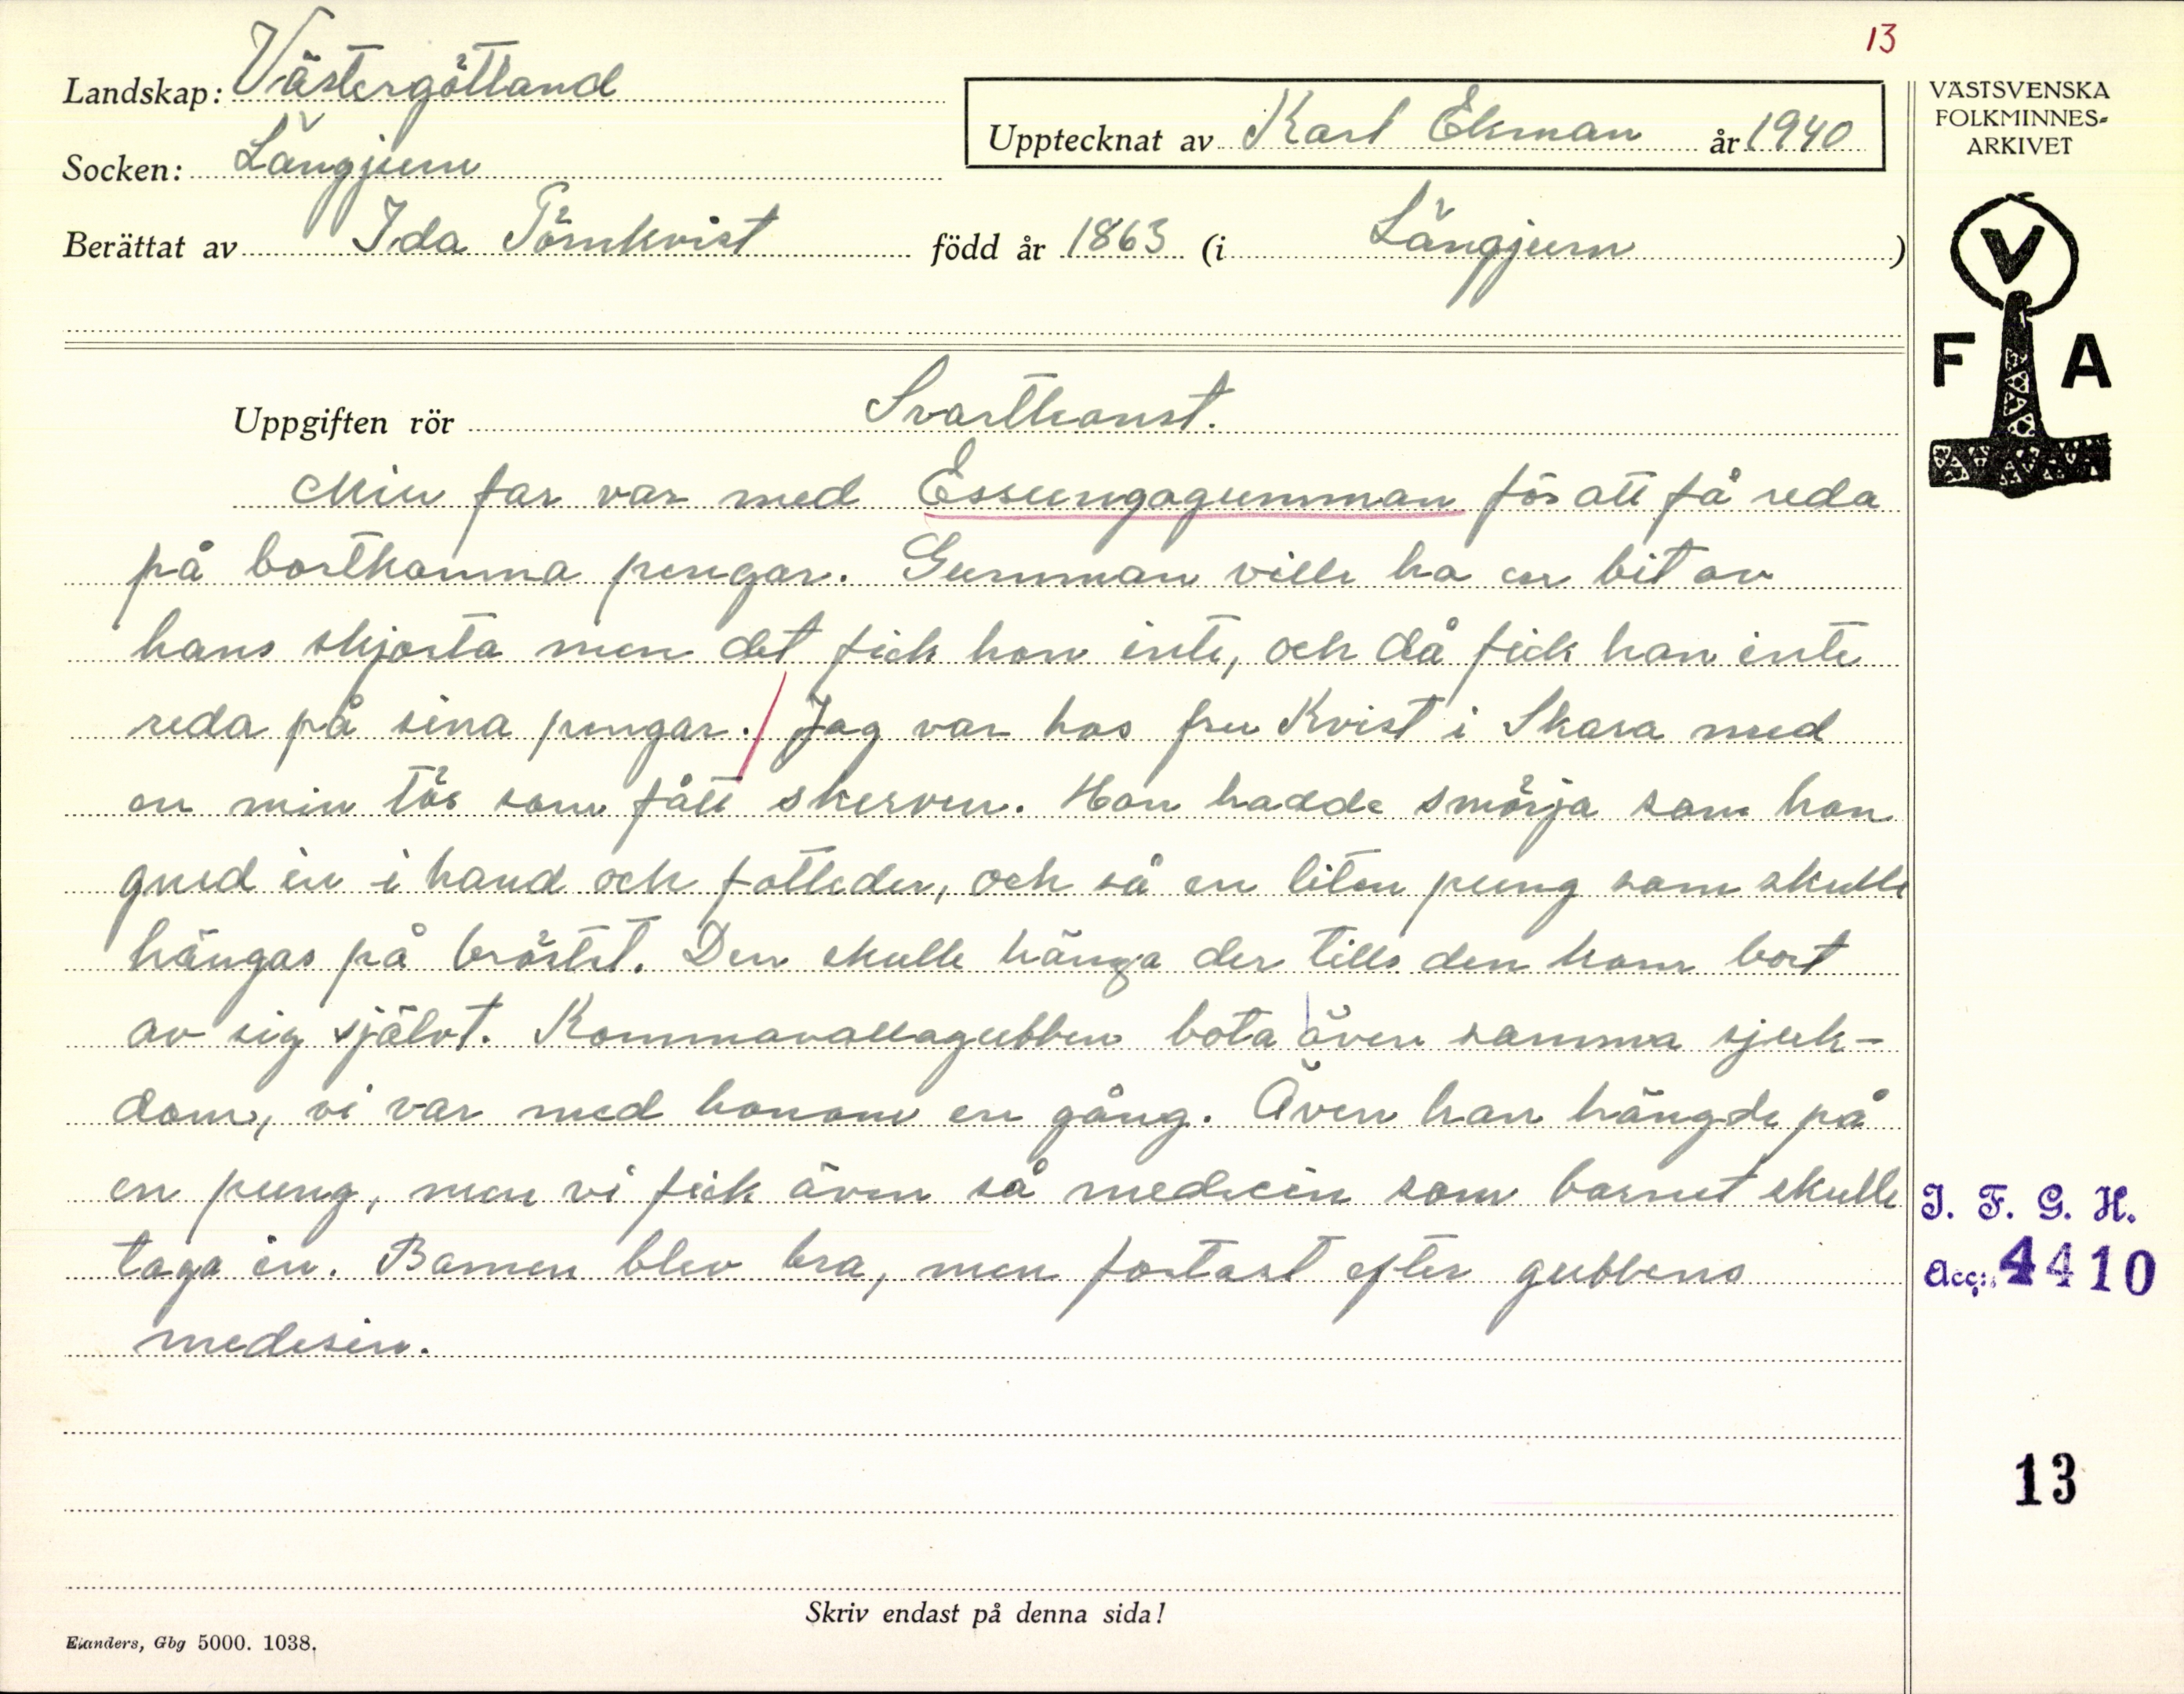 13
Landskap: Västergötland
Socken: Långjum
Upptecknat av Karl Ekman år 1940
Berättat av Ida Törnkvist född år 1863 (i Långjum)
VÄSTSVENSKA
FOLKMINNES-
ARKIVET
V
F A
Uppgiften rör Svartkonst.
Min far var med Essungagumman för att få reda
på bortkomna pengar. Gumman ville ha en bit av
hans skjorta men det fick hon inte, och då fick han inte
reda på sina pengar. / Jag var hos fru Kvist i Skara med
en min tös som fått skerven. Hon hadde smörja som hon
gned in i hand och fotleder, och så en liten pung som skulle
hängas på bröstet. Den skulle hänga der tills den kom bort
av sig självt. Kommavallagubben bota även samma sjuk-
dom, vi var med honom en gång. Även han hängde på
en pung, men vi fick även så medecin som barnet skulle
taga in. Barnen blev bra, men fortast efter gubbens
medesin.
I. F. G. H.
Acc. 4410
13
Skriv endast på denna sida!
Elanders, Gbg 5000. 1038.